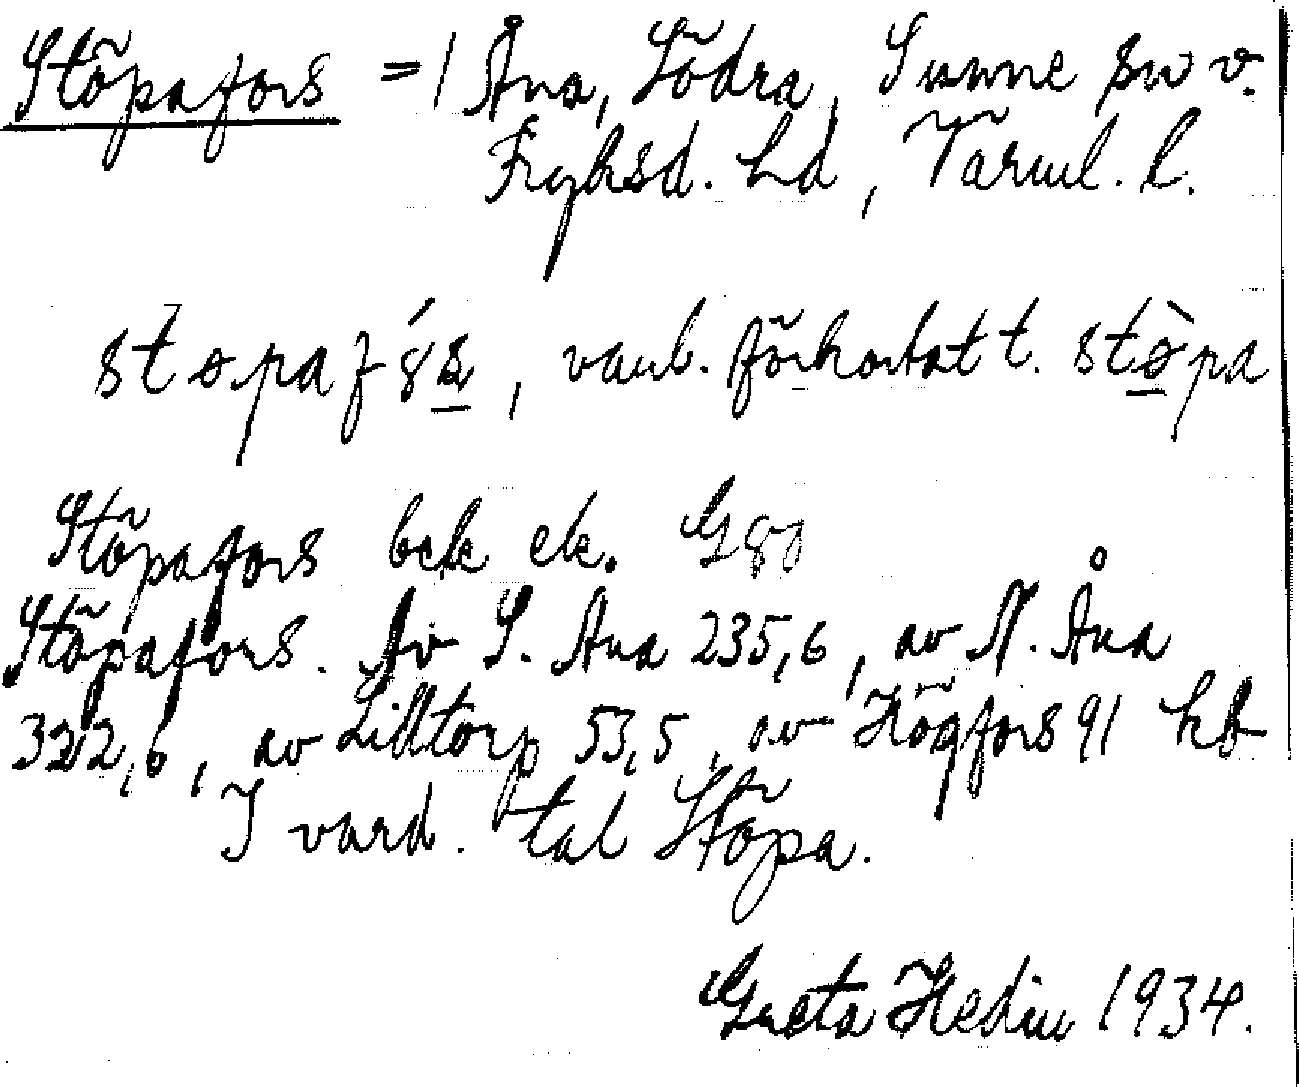 Stöpafors = / Åna, Södra, Sunne sn v.
Fryksd. hd, Värml. l.
stopafós, vanl. förkortat t. stòpa
Stöpafors bek ek. G80
Stöpafors. Av S. Åna 235,6, av N. Åna
322,6, av Lilltorp 53,5, av Högfors 91 har
I vard. tal Stöpa.
Greta Hedin 1934.